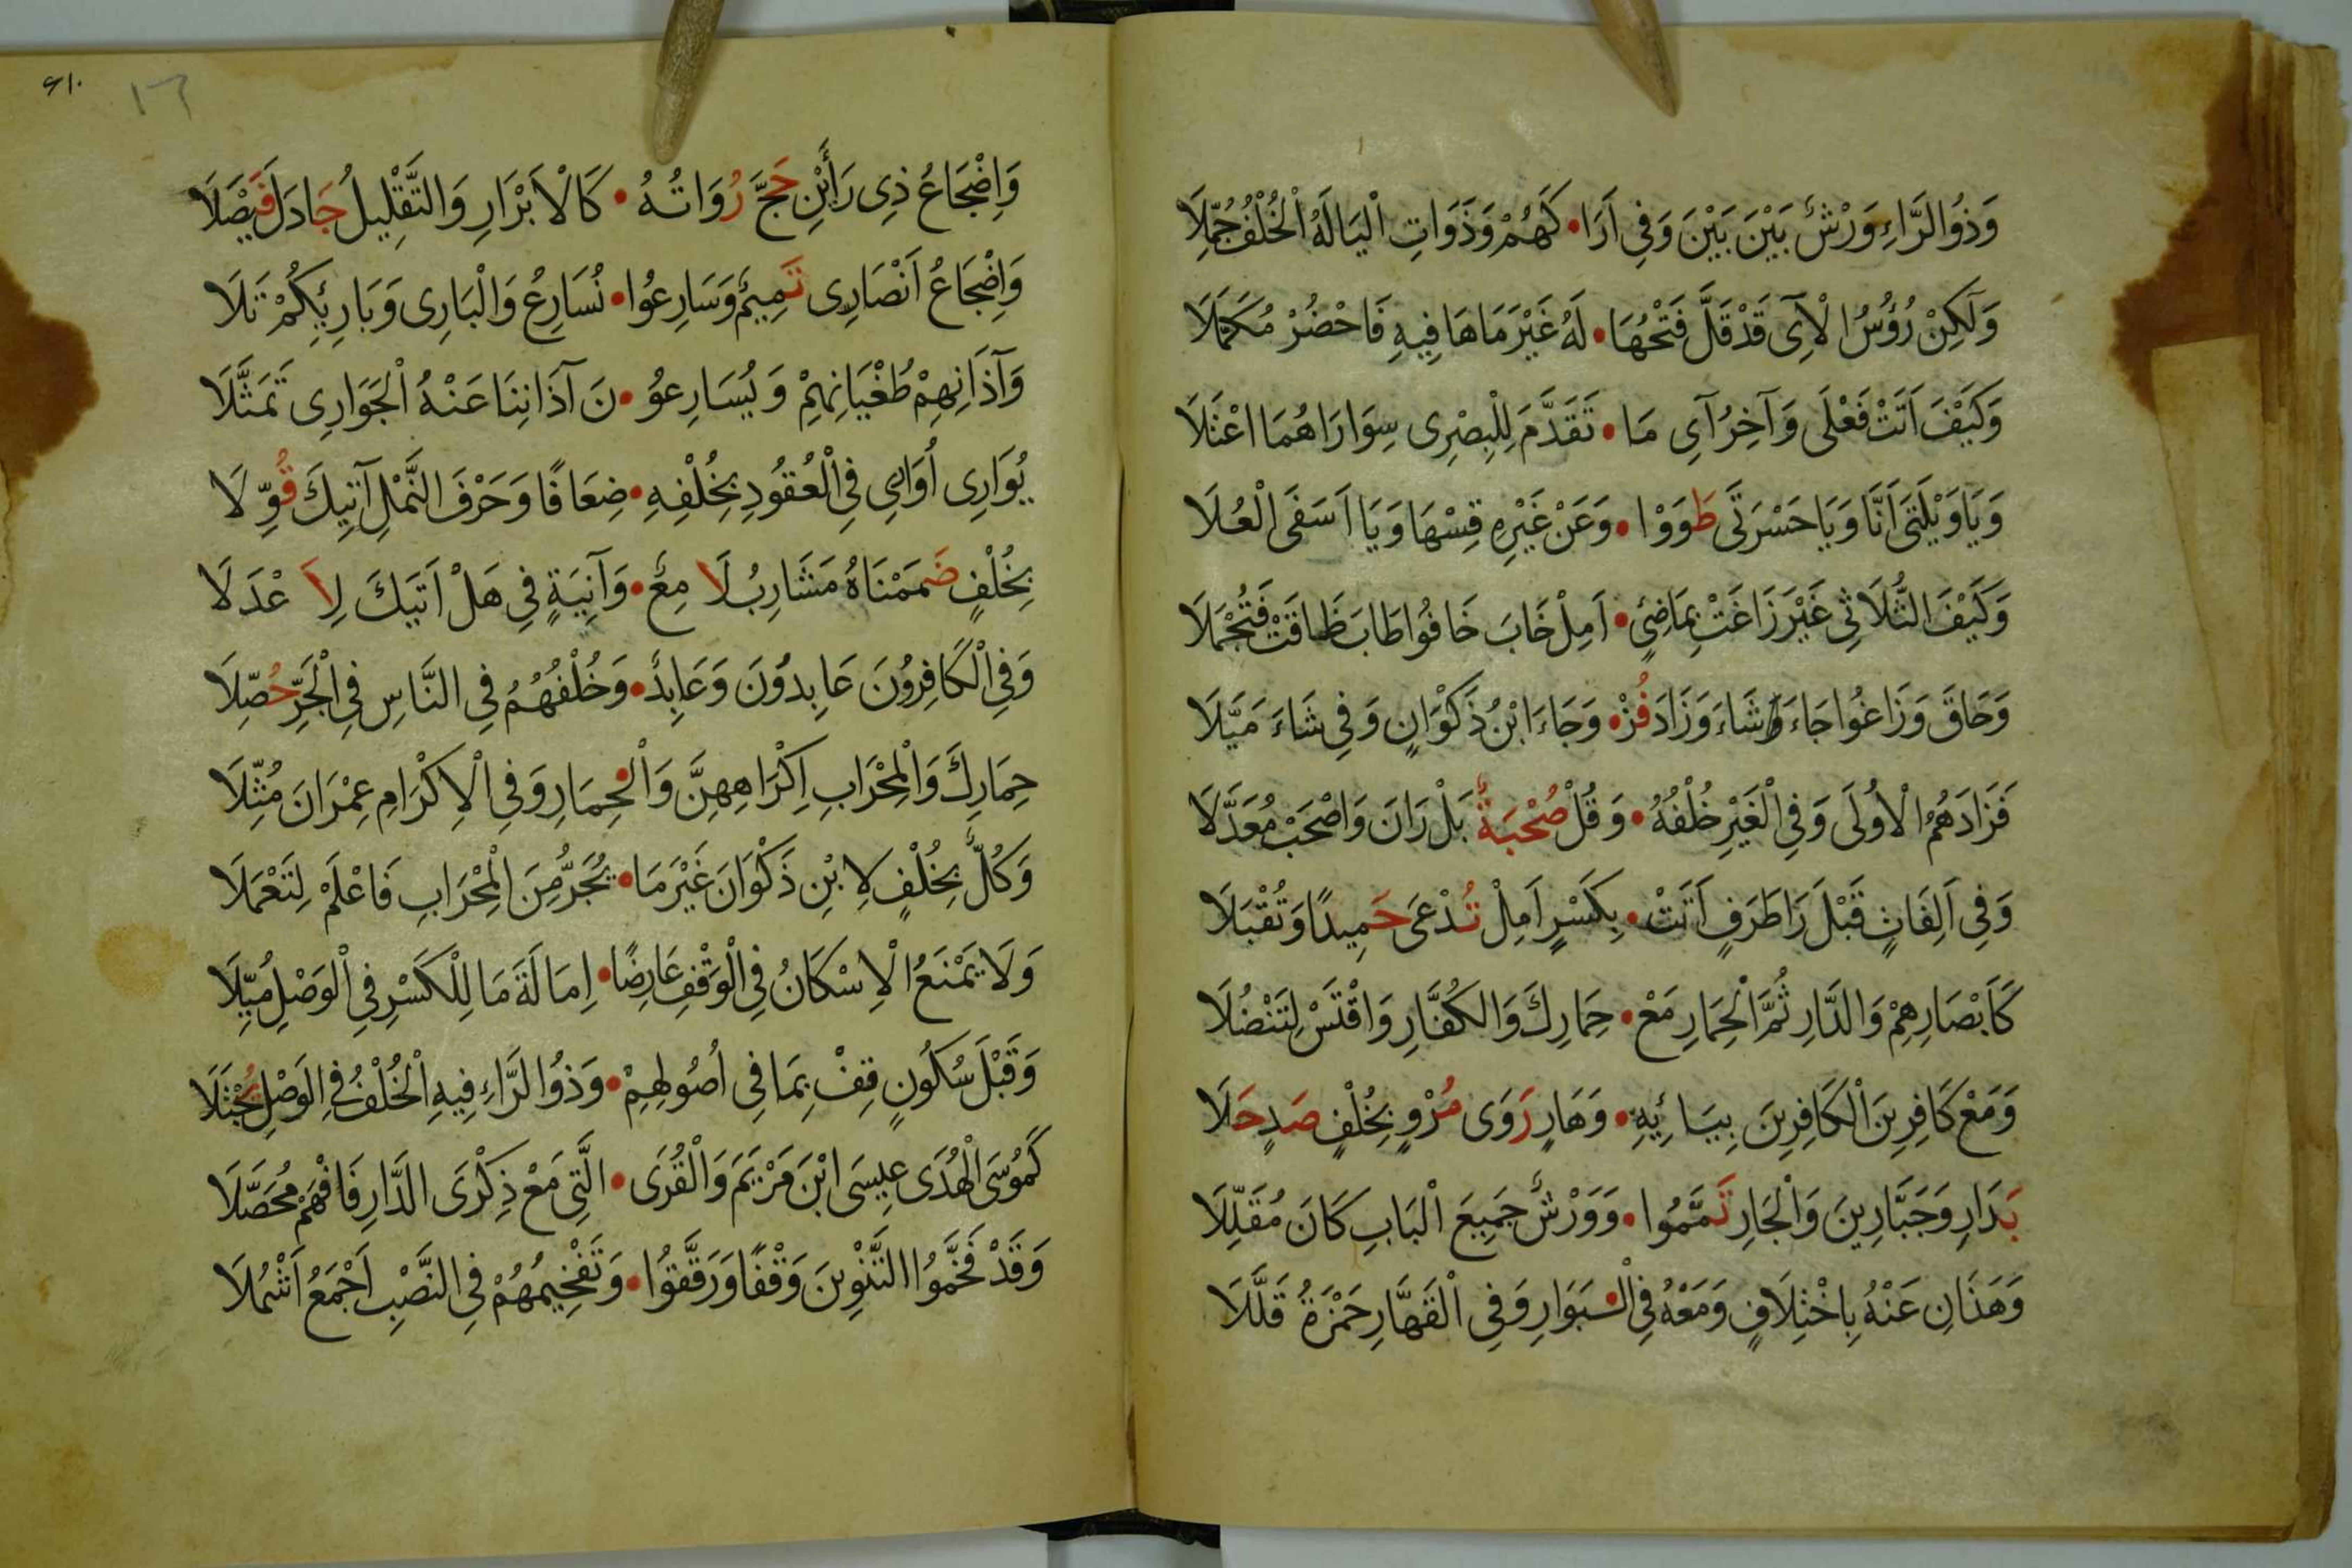 وَذُوا الرَّاءِ وَرْشٌ بَيْنَ بَيْنَ وَفِى اَرَا • كَهُمْ وَذَوَاتِ الْيَا لَهُ الْخُلْفُ جُمِّلَا
وَلَكِنْ رُؤُسُ الْآىِ قَدْ قَلَّ فَتْحُهَا • لَهُ غَيْرَ مَا هَا فِيهِ فَاحْضُرْ مُكَمَّلَا
وَكَيْفَ اَتَتْ فَعْلَى وَآخِرُ آىِ مَا • تَقَدَّمَ لِلْبِصْرِى سِوَا رَاهُمَا اعْتَلَا
وَيَا وَيْلَتَى اَنَّا وَيَا حَسْرَتَى طَوَوْا • وَعَنْ غَيْرِهِ قِسْهَا وَيَا اَسَفَى الْعُلَا
وَكَيْفَ الثُّلَاثِى غَيْرَ زَاغَتْ بِمَاضِىٍ • اَمِلْ خَابَ خَافُوا طَابَ ظَاقَتْ فَتُجْمِلَا
وَحَاقَ وَزَاغُوا جَاءَ وَشَاءَ وَزَادَ فُزْ • وَجَاءَ ابْنُ ذَكْوَانٍ وَفِى شَاءَ مَيَّلَا
فَزَادَهُمُ الْاُولَى وَفِى الْغَيْرِ خُلْفُهُ • وَقُلْ صُحْبَةٌ بَلْ رَانَ وَاصْحَبْ مُعَدَّلَا
وَفِى اَلِفَاتٍ قَبْلَ رَا طَرَفٍ اَتَتْ • بِكَسْرٍ اَمِلْ تُدْعَى حَمِيدًا وَتُقْبَلَا
كَاَبْصَارِهِمْ وَالدَّارِ ثُمَّ الْحِمَارِ مَعْ • حِمَارِكَ وَالْكُفَّارِ وَاقْتَسْ لِتَنْضُلَا
وَمَعْ كَافِرِينَ الْكَافِرِينَ بِيَائِهِ • وَهَارٍ رَوَى مُرْوٍ بِخُلْفٍ صَدٍ حَلَا
بَدَارِ وَجَبَّارِينَ وَالْجَارِ تَمَّمُوا • وَوَرْشٌ جَمِيعَ الْبَابِ كَانَ مُقَلِّلَا
وَهَذَانِ عَنْهُ بِاخْتِلَافٍ وَمَعْهُ فِى الْبَوَارِ وَفِى الْقَهَّارِ حَمْزَةُ قَلَّلَا
۱٦
وَاِضْجَاعُ ذِى رَائَيْنِ حَجَّ رُوَاتُهُ • كَالْاَبْرَارِ وَالتَّقْلِيلُ جَادَلَ فَيْصَلَا
وَاِضْجَاعُ اَنْصَارِى تَمِيمٌ وَسَارِعُوا • نُسَارِعُ وَالْبَارِى وَبَارِئِكُمْ تَلَا
وَآذَانِهِمْ طُغْيَانِهِمْ وَيُسَارِعُو • نَ آذَانِنَا عَنْهُ الْجَوَارِى تَمَثَّلَا
يُوَارِى اُوَارِى فِى الْعُقُودِ بِخُلْفِهِ • ضِعَافًا وَحَرْفَ النَّمْلِ آتِيكَ قُوِّلَا
بِخُلْفٍ ضَمَمْنَاهُ مَشَارِبُ لَامِعٌ • وَآنِيَةٍ فِى هَلْ اَتَيكَ لِاَعْدَلَا
وَفِى الْكَافِرُونَ عَابِدُونَ وَعَابِدٌ • وَخُلْفُهُمُ فِى النَّاسِ فِى الْجَرِّ حُصِّلَا
حِمَارِكَ وَالْمِحْرَابِ اِكْرَاهِهِنَّ وَالْحِمَارِ وَفِى الْاِكْرَامِ عِمْرَانَ مُثِّلَا
وَكُلٌّ بِخُلْفٍ لِابْنِ ذَكْوَانَ غَيْرَ مَا • يُجَرُّ مِنَ الْمِحْرَابِ فَاعْلَمْ لِتَعْمَلَا
وَلَا يَمْنَعُ الْاِسْكَانُ فِى الْوَقْفِ عَارِضًا • اِمَالَةَ مَا لِلْكَسْرِ فِى الْوَصْلِ مُيِّلَا
وَقَبْلَ سُكُونٍ قِفْ بِمَا فِى اُصُولِهِمْ • وَذُوا الرَّاءِ فِيهِ الْخُلْفُ فِى الْوَصْلِ يُجْتَلَا
كَمُوسَى الْهُدَى عِيسَى ابْنَ مَرْيَمَ وَالْقُرَى • الَّتِى مَعْ ذِكْرَى الدَّارِ فَافْهَمْ مُحَصِّلَا
وَقَدْ فَخَّمُوا التَّنْوِينَ وَقْفًا وَرَقَّقُوا • وَتَفْخِيمُهُمْ فِى النَّصْبِ اَجْمَعُ اَشْمُلَا